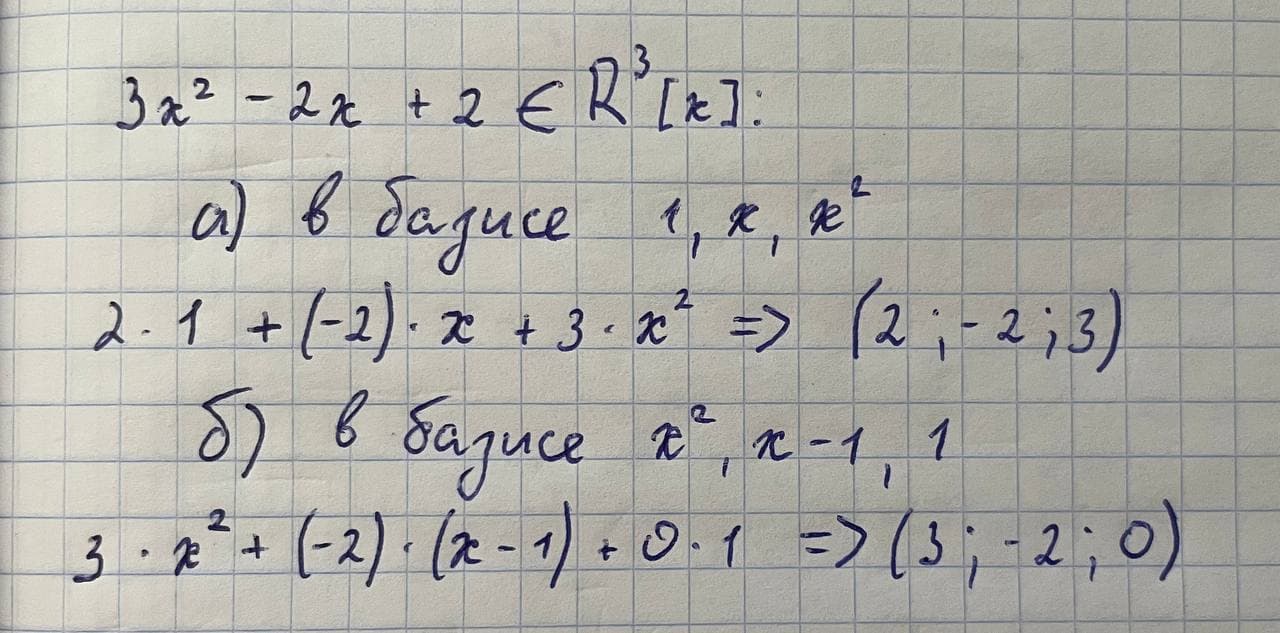 3x² - 2x + 2 ∈ R³[x]:
а) в базисе 1, x, x²
2 · 1 + (-2) · x + 3 · x² => (2 ; -2 ; 3)
б) в базисе x², x - 1, 1
3 · x² + (-2) · (x - 1) + 0 · 1 => (3 ; -2 ; 0)